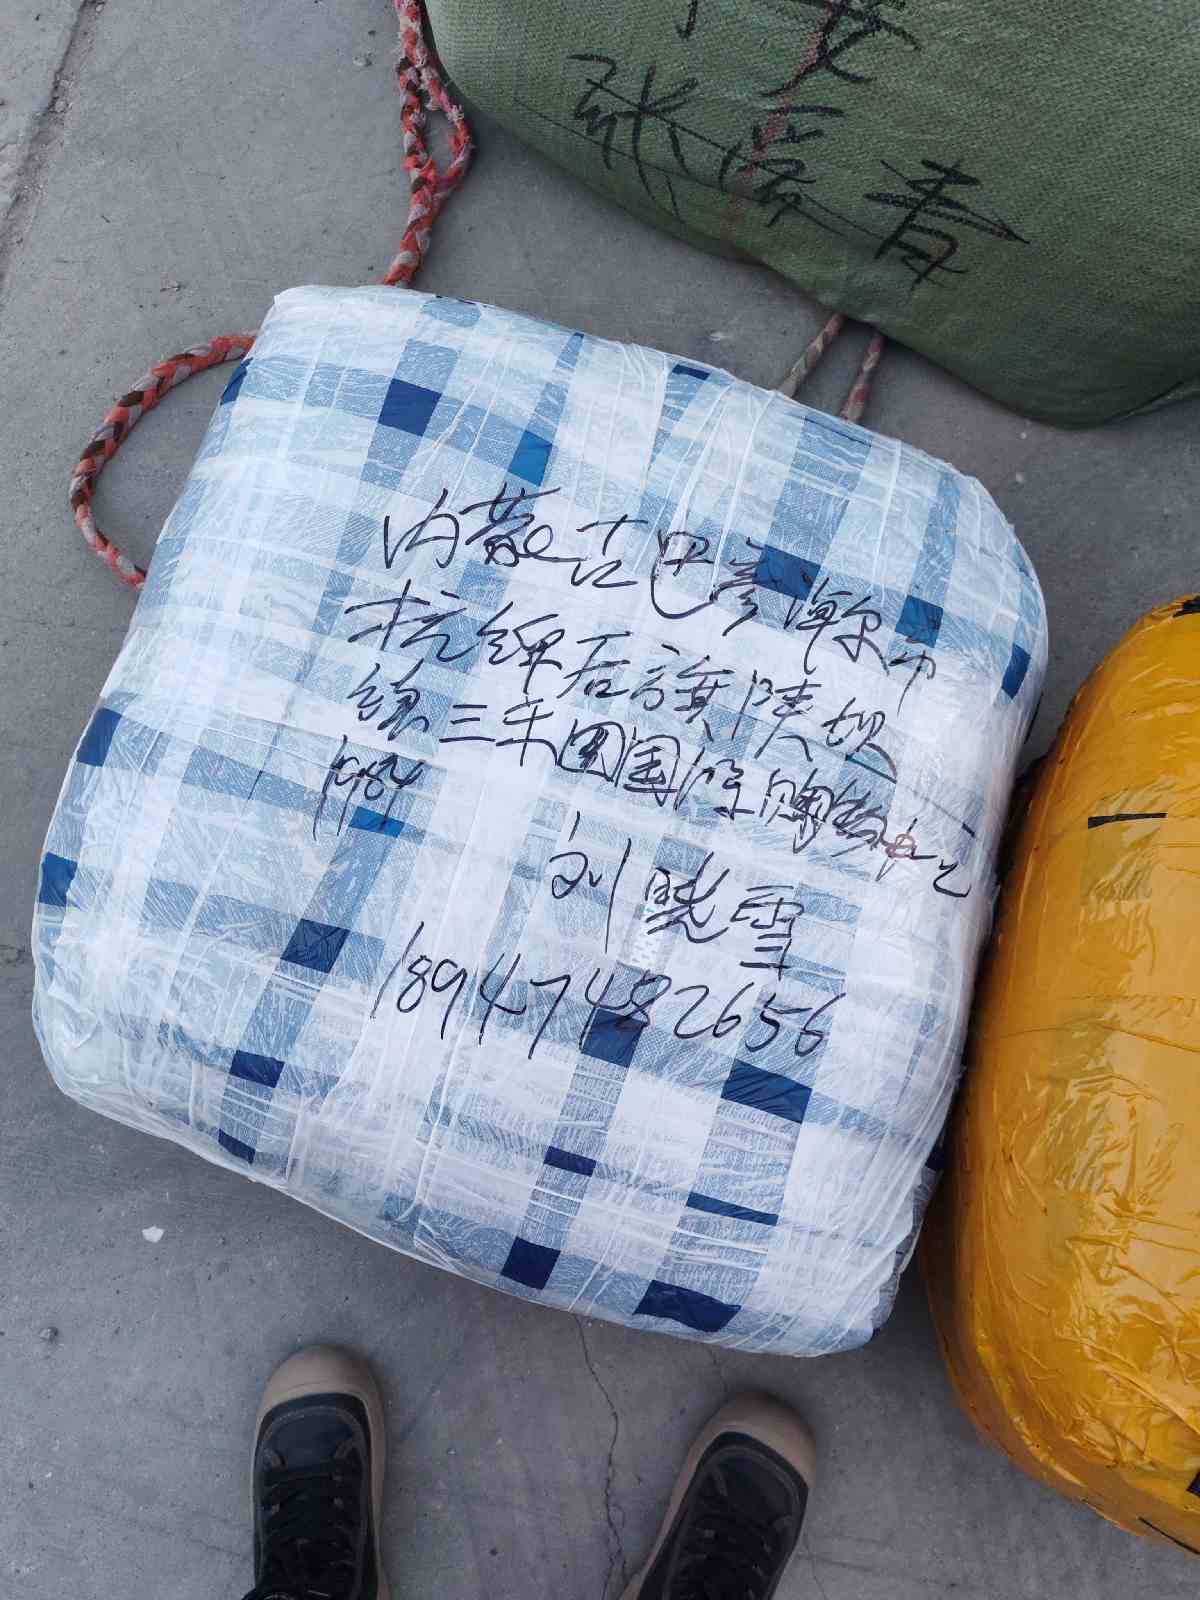 张爱青
内蒙古巴彦淖尔市
杭锦后旗陕坝
镇三年团国际购物中心
1984
刘晓雪
18947482656